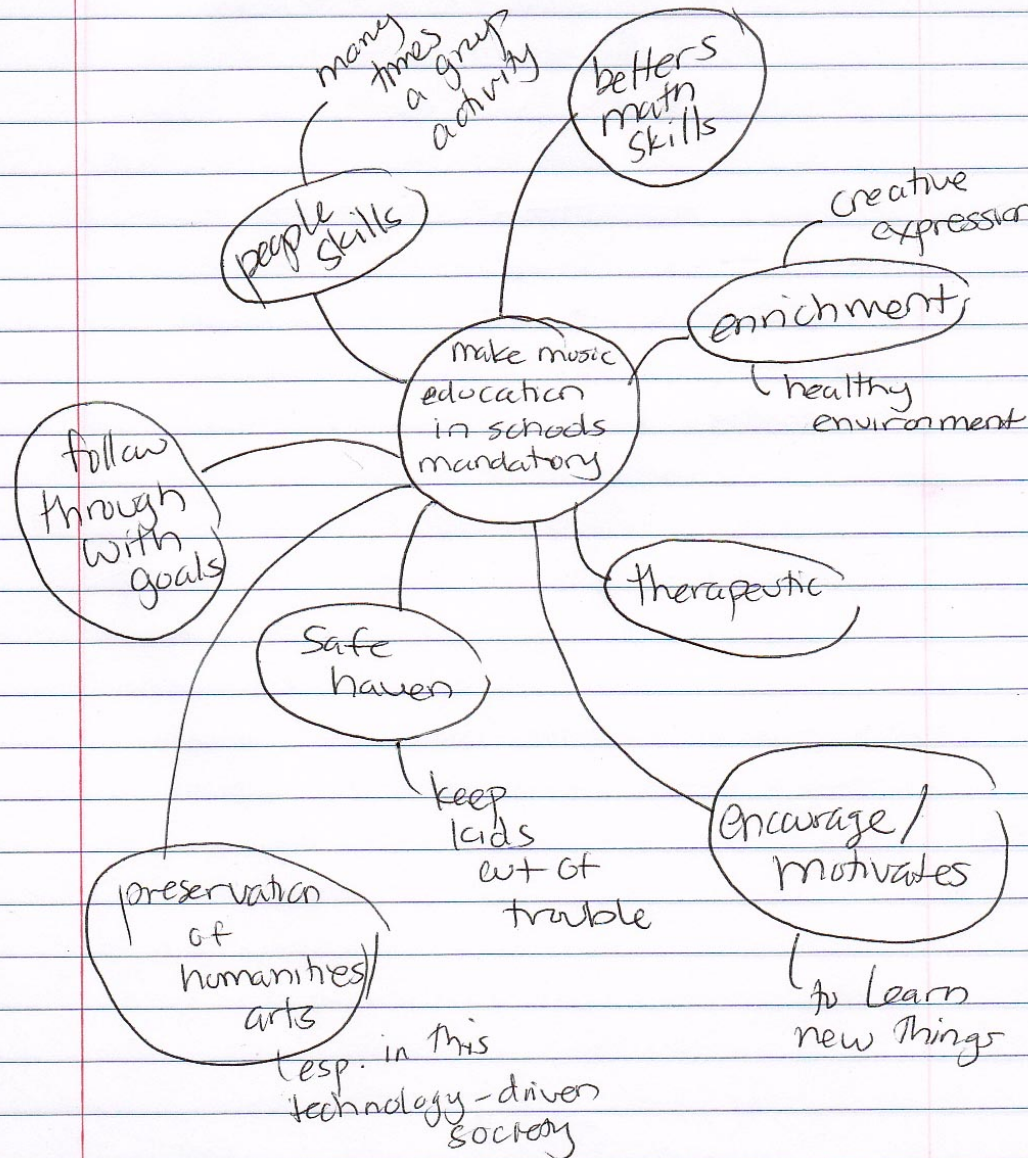 many
times
a group
activity
betters
math
skills
people
skills
creative
expression
enrichment
healthy
environment
make music
education
in schools
mandatory
follow
through
with
goals
therapeutic
Safe
haven
keep
kids
out of
trouble
encourage/
motivates
to Learn
new Things
preservation
of
humanities/
arts
esp. in this
technology-driven
society